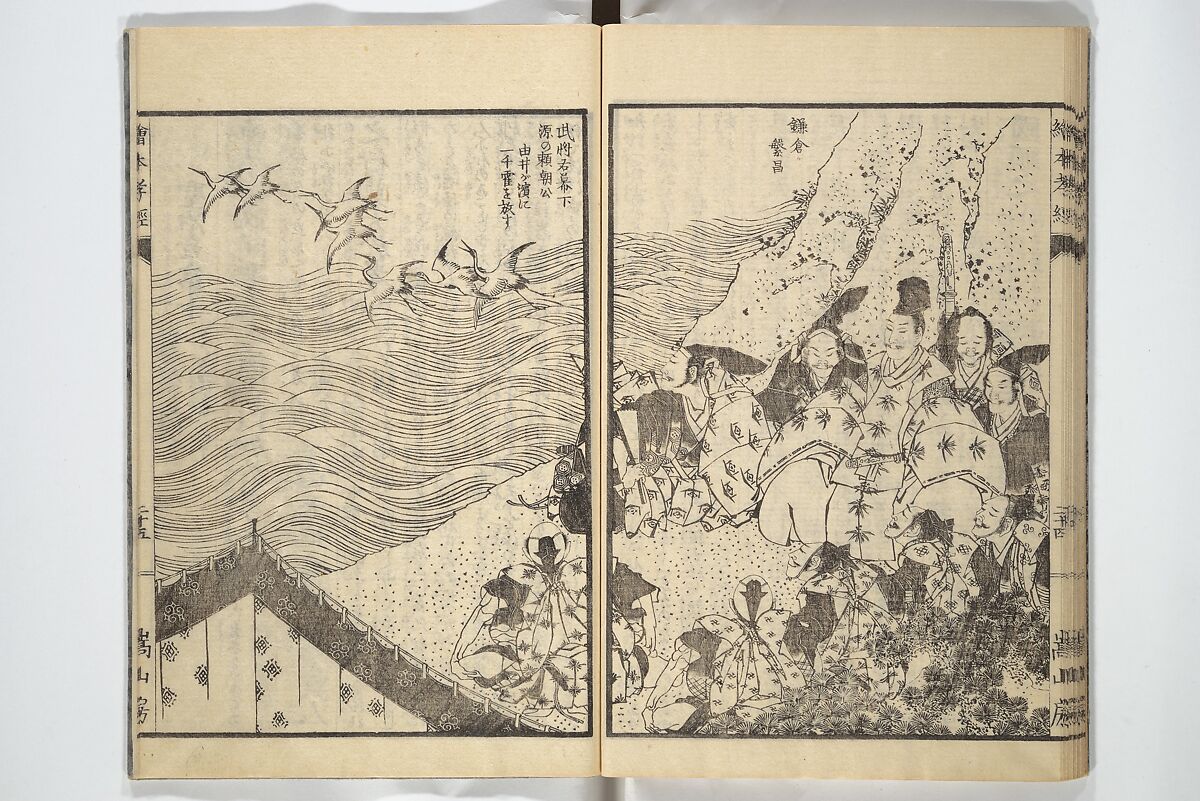 鎌倉
繁昌
武将右幕下
源の頼朝公
由井ガ濱に
一千霍を放す
繪本孝經
二十四
嵩山房
繪本孝經
二十五
嵩山房